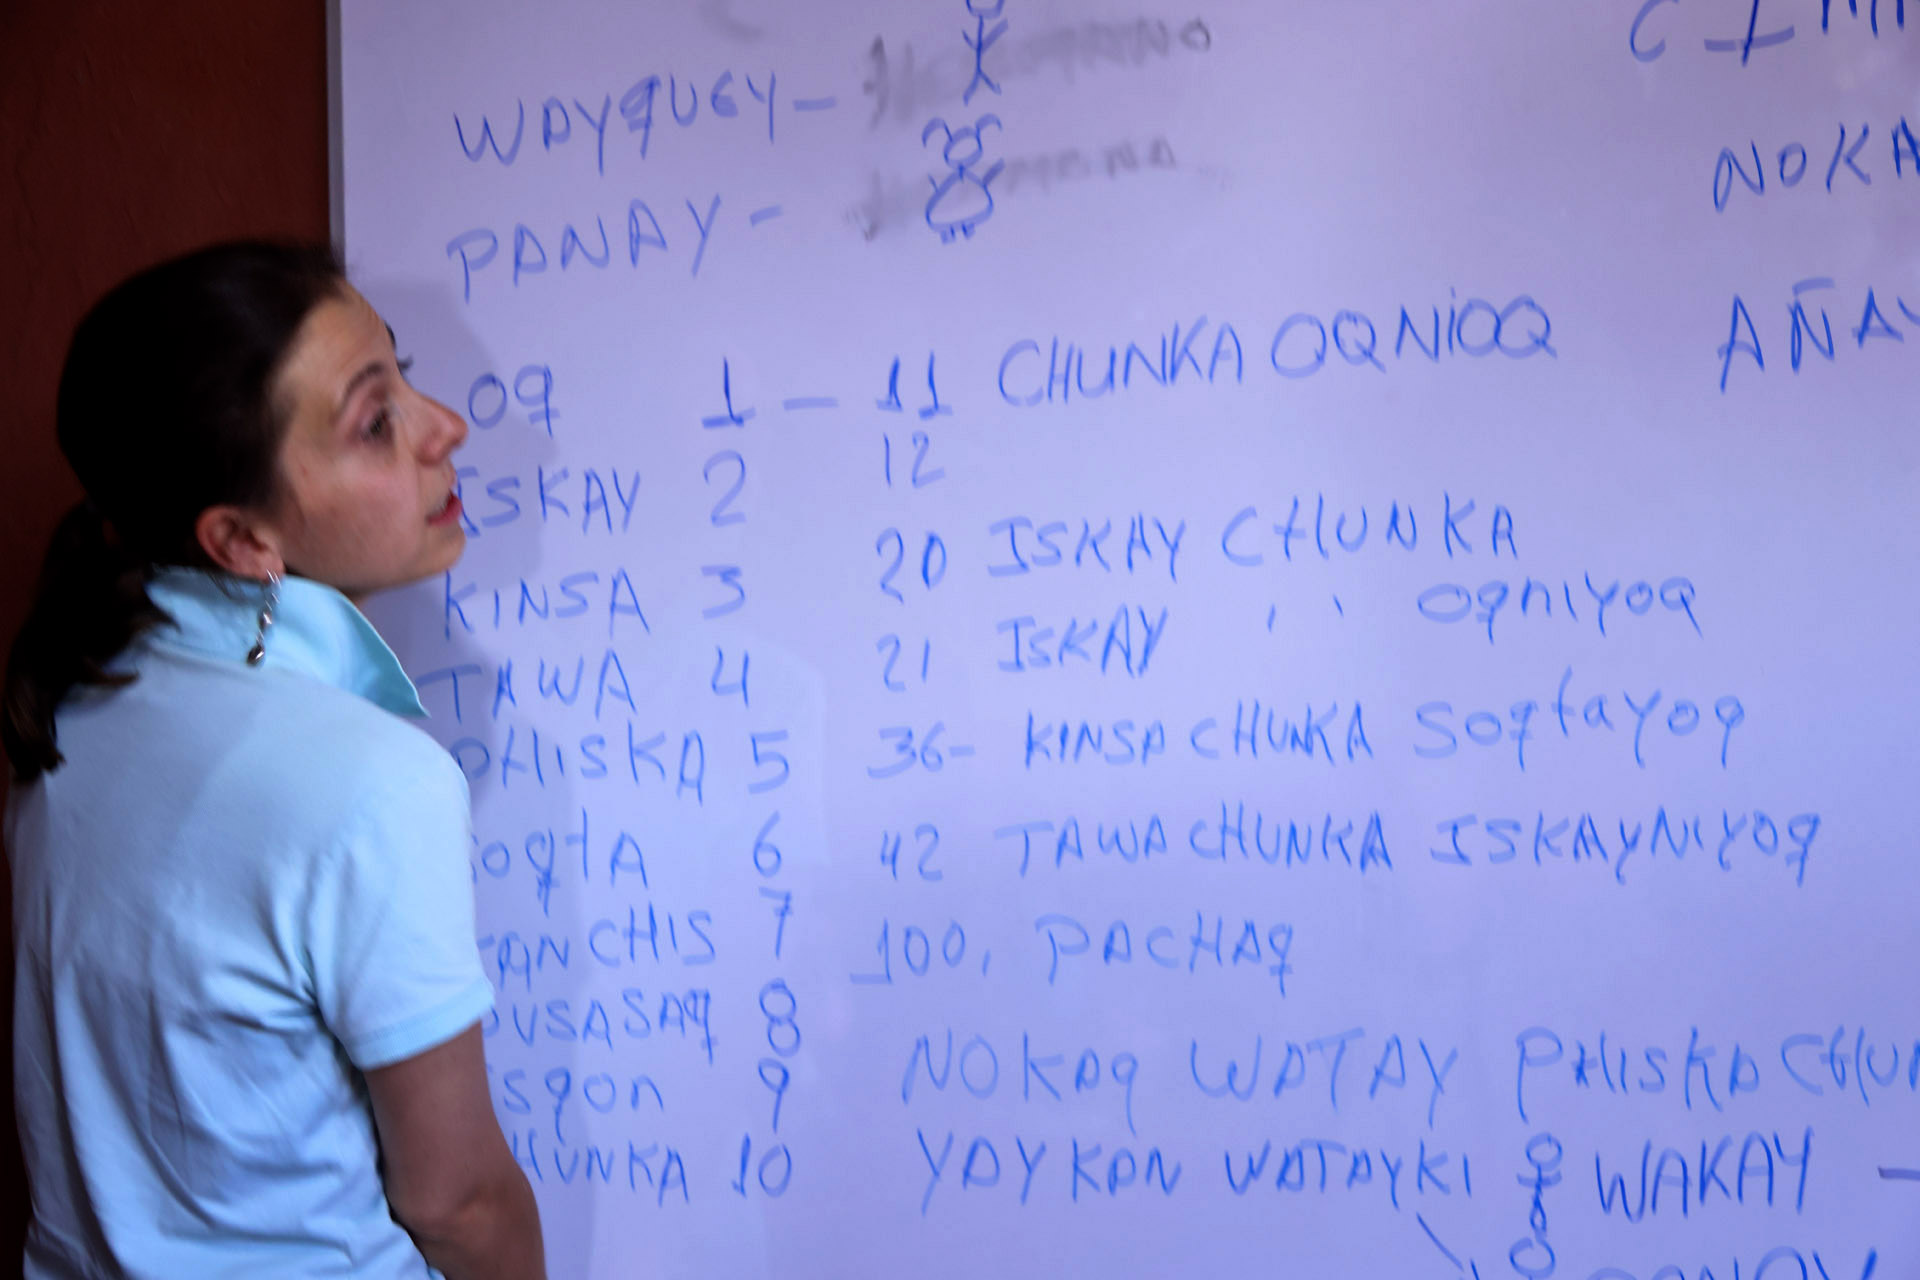 WAYQUEY -
PANAY -
OQ 1 - 11 CHUNKA OQNIOQ
ISKAY 2 12
KINSA 3 20 ISKAY CHUNKA
TAWA 4 21 ISKAY ' ' OQNIYOQ
PHISKA 5 36- KINSA CHUNKA SOQTAYOQ
OQTA 6 42 TAWA CHUNKA ISKAYNIYOQ
ANCHIS 7 100, PACHAQ
USASAQ 8
SQON 9 NOKAQ WATAY PHISKA CHUN
HUNKA 10 YAYKAN WATAYKI WAKAY -
NOKA
AÑAY